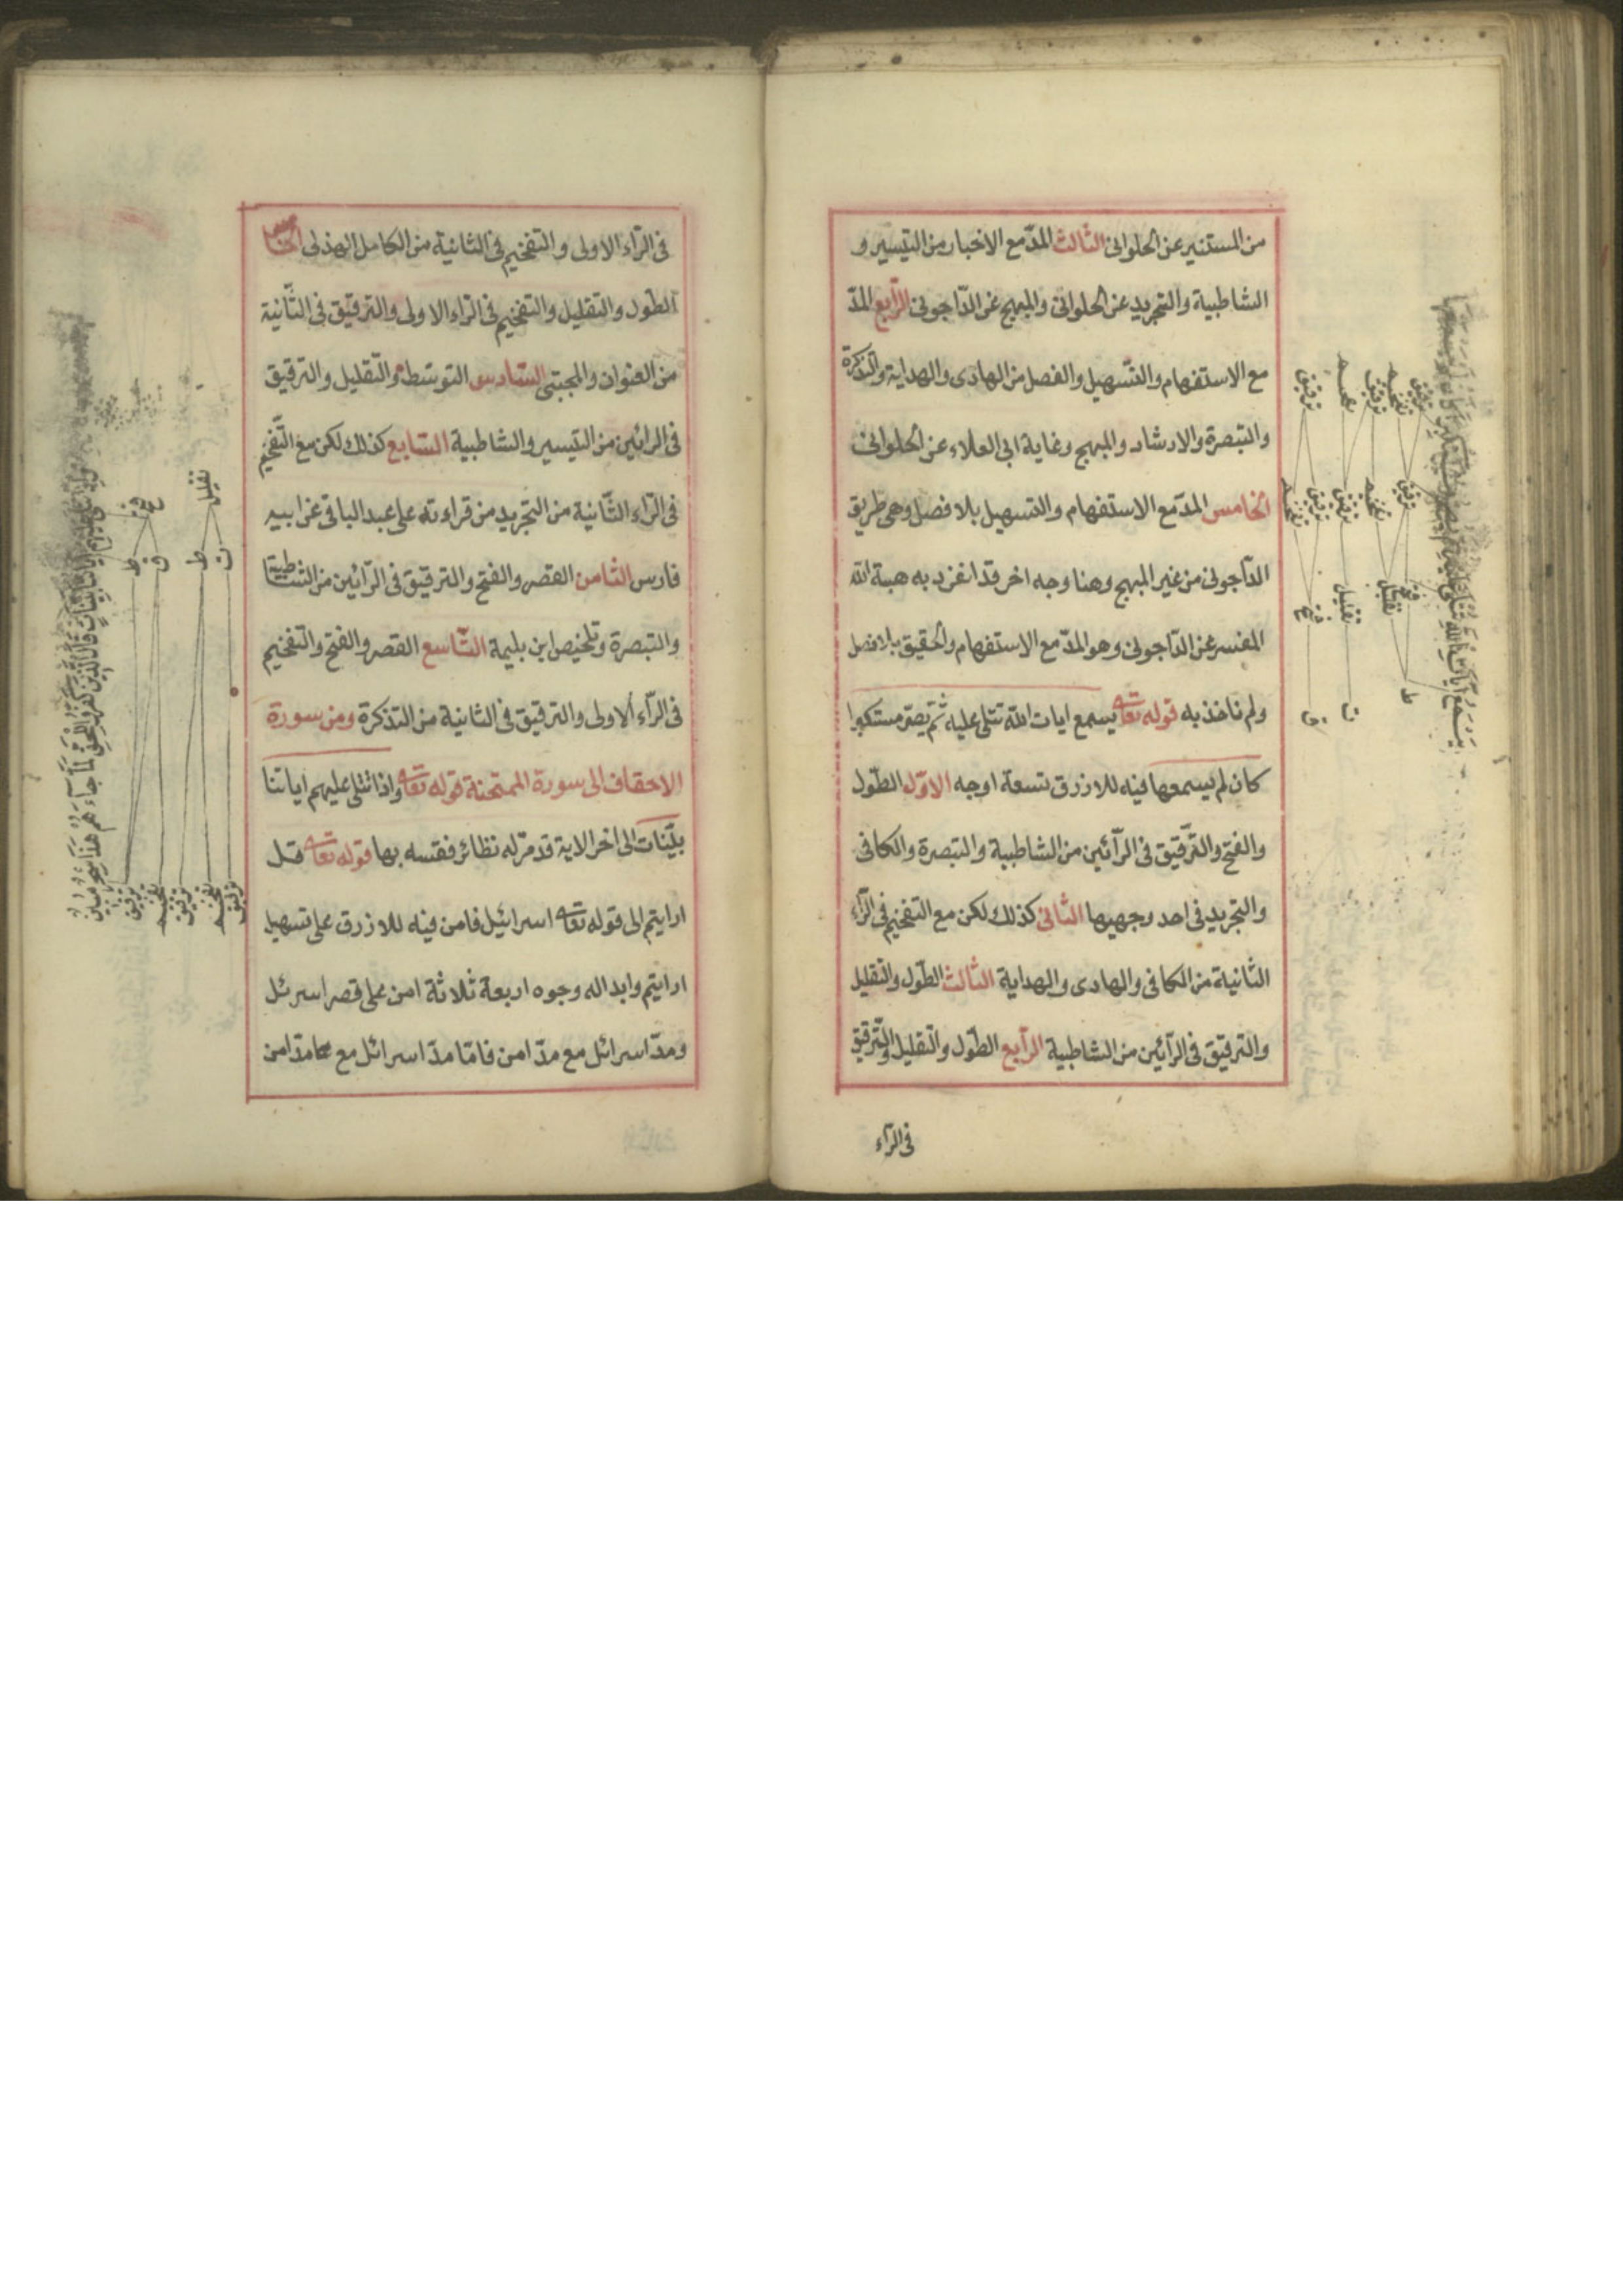 من المستنير عن الحلوانى الثالث المدّ مع الاخبار من التيسير و
الشاطبية والتجريد عن الحلوانى والمبهج عن الدّاجونى الرّابع المدّ
مع الاستفهام والتّسهيل والفصل من الهادى والهداية والتذكرة
والتبصرة والارشاد والمبهج وغاية ابى العلاء عن الحلوانى
الخامس المدّ مع الاستفهام والتسهيل بلا فصل وهى طريق
الدّاجونى من غير المبهج وهنا وجه اخر قد انفرد به هبة الله
المفسر عن الدّاجونى وهو المدّ مع الاستفهام والحقيق بلا فصل
ولم ناخذ به قوله تعا يسمع ايات الله تتلى عليه ثم يصرّ مستكبرا
كان لم يسمعها فيه للازرق تسعة اوجه الاوّل الطّول
والفتح والتّرقيق فى الرّائين من الشاطبية والتبصرة والكافى
والتجريد فى احد وجهيها الثانى كذلك لكن مع التفخيم فى الرّاء
الثانية من الكافى والهادى والهداية الثالث الطّول والتقليل
والترقيق فى الرّائين من الشاطبية الرّابع الطّول والتّقليل والتّرقيق
فى الرّاء
فى الرّاء الاولى والتفخيم فى الثانية من الكامل الهذلى الخامس
الطّول والتقليل والتفخيم فى الرّاء الاولى والترقيق فى الثّانية
من العنوان والمجتبى السّادس التوسّط والتّقليل والترقيق
فى الرائين من التيسير والشاطبية السّابع كذلك لكن مع التّفخيم
فى الرّاء الثّانية من التجريد من قراءته على عبد الباقى عن ابيه
فارس الثّامن القصر والفتح والترقيق فى الرّائين من الشاطبية
والتبصرة وتلخيص ابن بليمة التّاسع القصر والفتح والتفخيم
فى الرّاء الاولى والترقيق فى الثانية من التذكرة ومن سورة
الاحقاف الى سورة الممتحنة قوله تعا واذا تتلى عليهم اياتنا
بيّنات الى اخر الاية قد مرّ له نظائر فقسه بها قوله تعا قل
ارايتم الى قوله تعا اسرائيل فامن فيه للازرق على تسهيل
ارايتم وابداله وجوه اربعة ثلاثة امن على قصر اسرئل
ومدّ اسرائل مع مدّ امن فامّا مدّ اسرائل مع مدّ امن